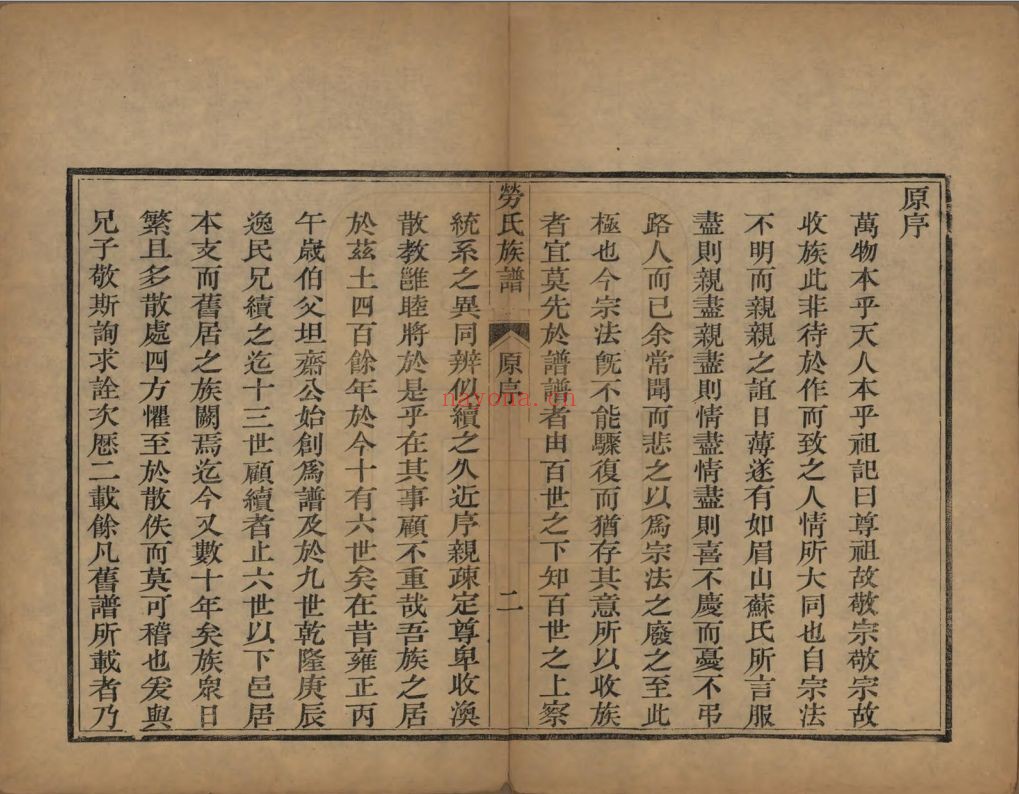 原序
萬物本乎天人本乎祖記曰尊祖故敬宗敬宗故
收族此非待於作而致之人情所大同也自宗法
不明而親親之誼日薄遂有如眉山蘇氏所言服
盡則親盡親盡則情盡情盡則喜不慶而憂不弔
路人而已余常聞而悲之以爲宗法之廢之至此
極也今宗法旣不能驟復而猶存其意所以收族
者宜莫先於譜譜者由百世之下知百世之上察
勞氏族譜 原序 二
統系之異同辨似續之久近序親疎定尊卑收渙
散敎雝睦將於是乎在其事顧不重哉吾族之居
於茲土四百餘年於今十有六世矣在昔雍正丙
午歲伯父坦齋公始創爲譜及於九世乾隆庚辰
逸民兄續之迄十三世顧續者止六世以下邑居
本支而舊居之族闕焉迄今又數十年矣族衆日
繁且多散處四方懼至於散佚而莫可稽也爰與
兄子敬斯詢求詮次歷二載餘凡舊譜所載者乃
nayona.cn